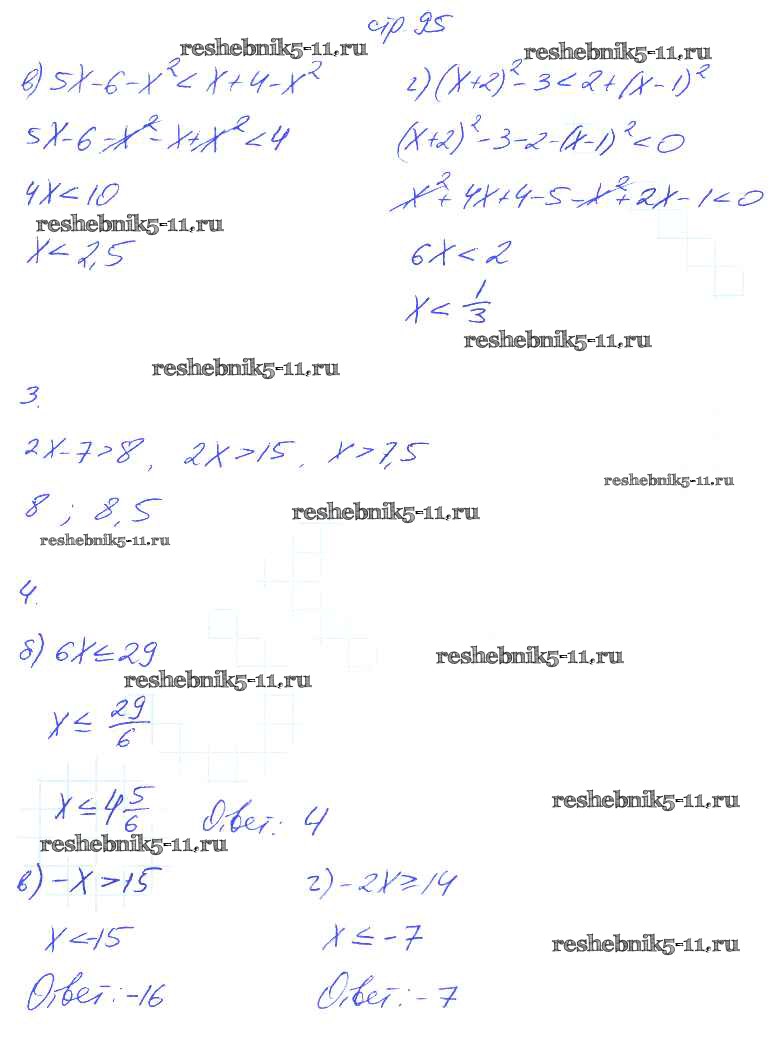 стр. 95
reshebnik5-11.ru reshebnik5-11.ru
в) 5x-6-x²<x+4-x² г) (x+2)²-3<2+(x-1)²
5x-6-x²-x+x²<4 (x+2)²-3-2-(x-1)²<0
4x<10 x²+4x+4-5-x²+2x-1<0
reshebnik5-11.ru
x<2,5 6x<2
x<1/3
reshebnik5-11.ru
reshebnik5-11.ru
3.
2x-7>8, 2x>15, x>7,5
reshebnik5-11.ru
8; 8,5 reshebnik5-11.ru
reshebnik5-11.ru
4.
б) 6x≤29 reshebnik5-11.ru
reshebnik5-11.ru
x≤29/6
x≤4 5/6 Ответ: 4 reshebnik5-11.ru
reshebnik5-11.ru
в) -x>15 г) -2x≥14
x<-15 x≤-7 reshebnik5-11.ru
Ответ: -16 Ответ: -7